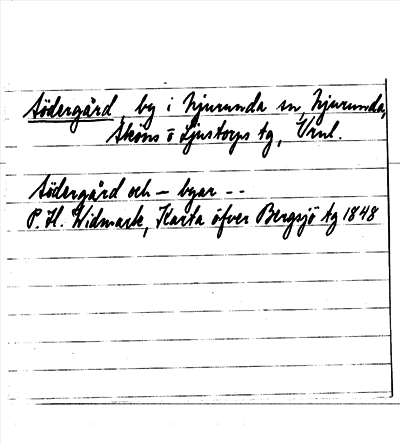 Södergård, by i Njurunda sn, Njurunda,
Sköns o Ljustorps tg, Vrnl.
Södergård och – byar - -
P. H. Widmark, Karta öfver Bergsjö tg 1848